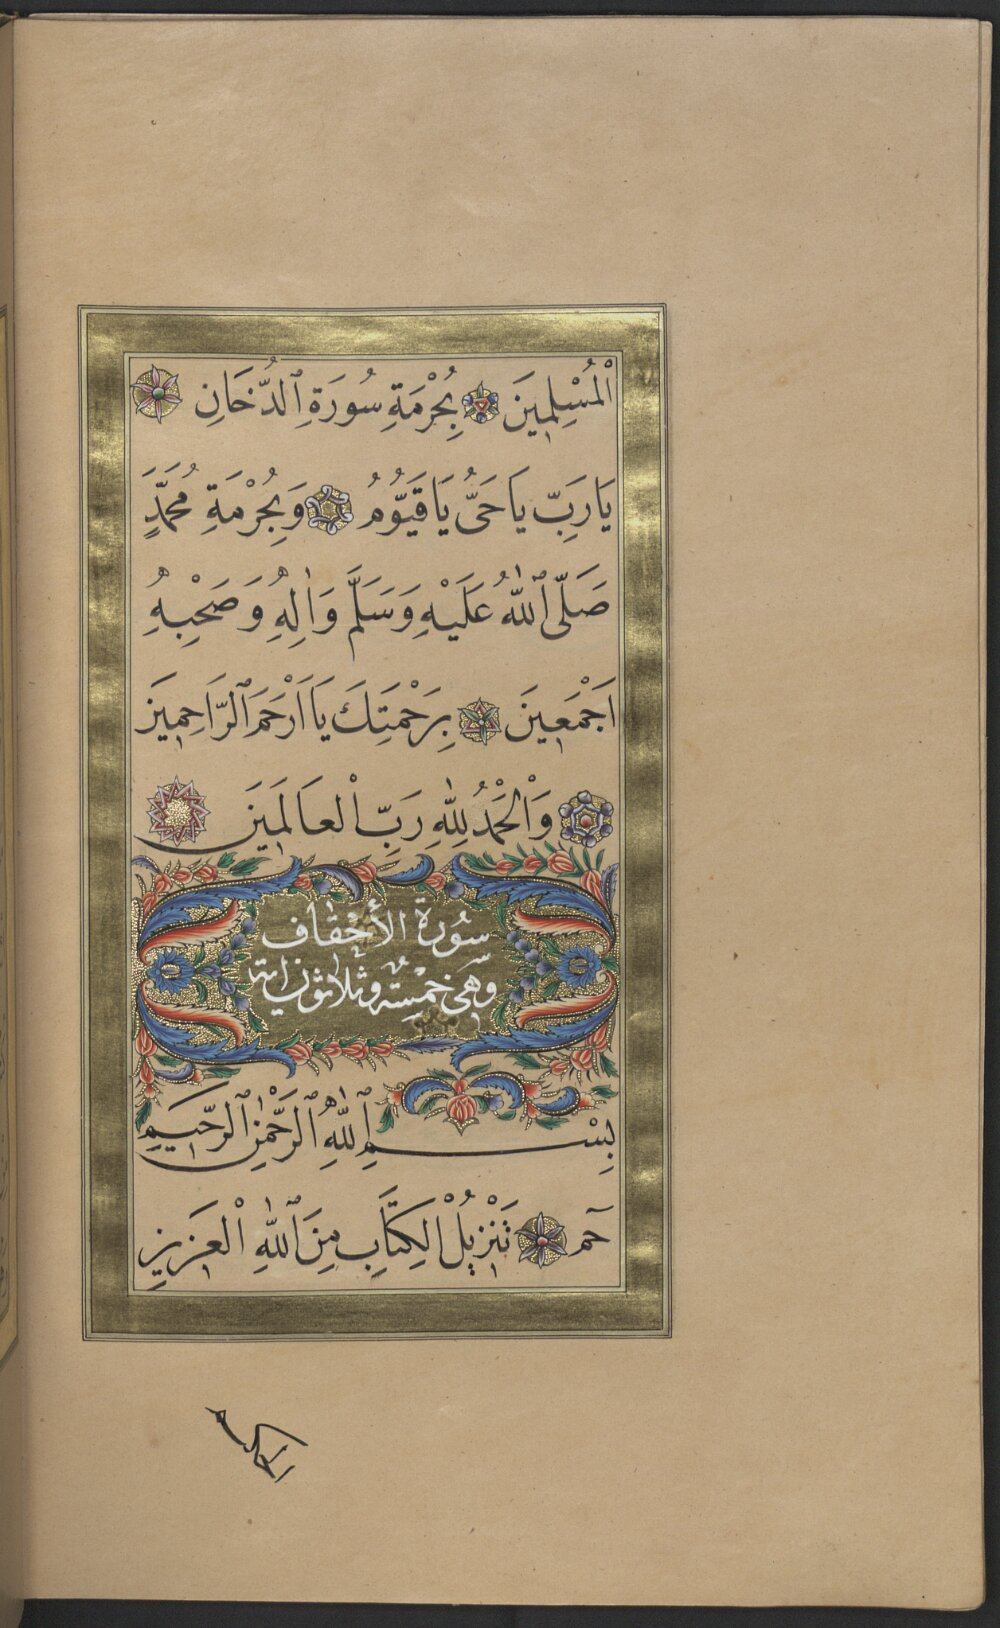 الْمُسْلِمِينَ بِحُرْمَةِ سُورَةِ ٱلدُّخَانِ
يَا رَبِّ يَا حَىُّ يَا قَيُّومُ وَبِحُرْمَةِ مُحَمَّدٍ
صَلَّى ٱللّٰهُ عَلَيْهِ وَسَلَّمَ وَاٰلِهِ وَصَحْبِهِ
اَجْمَعِينَ بِرَحْمَتِكَ يَا اَرْحَمَ ٱلرَّاحِمِينَ
وَالْحَمْدُ لِلّٰهِ رَبِّ الْعَالَمِينَ
سُورَة الأَحْقَاف
وهي خمسة وثلاثون اية
بِسْمِ ٱللّٰهِ ٱلرَّحْمٰنِ ٱلرَّحِيمِ
حٓم تَنْزِيلُ الْكِتَابِ مِنَ ٱللّٰهِ الْعَزِيزِ
الحكيم